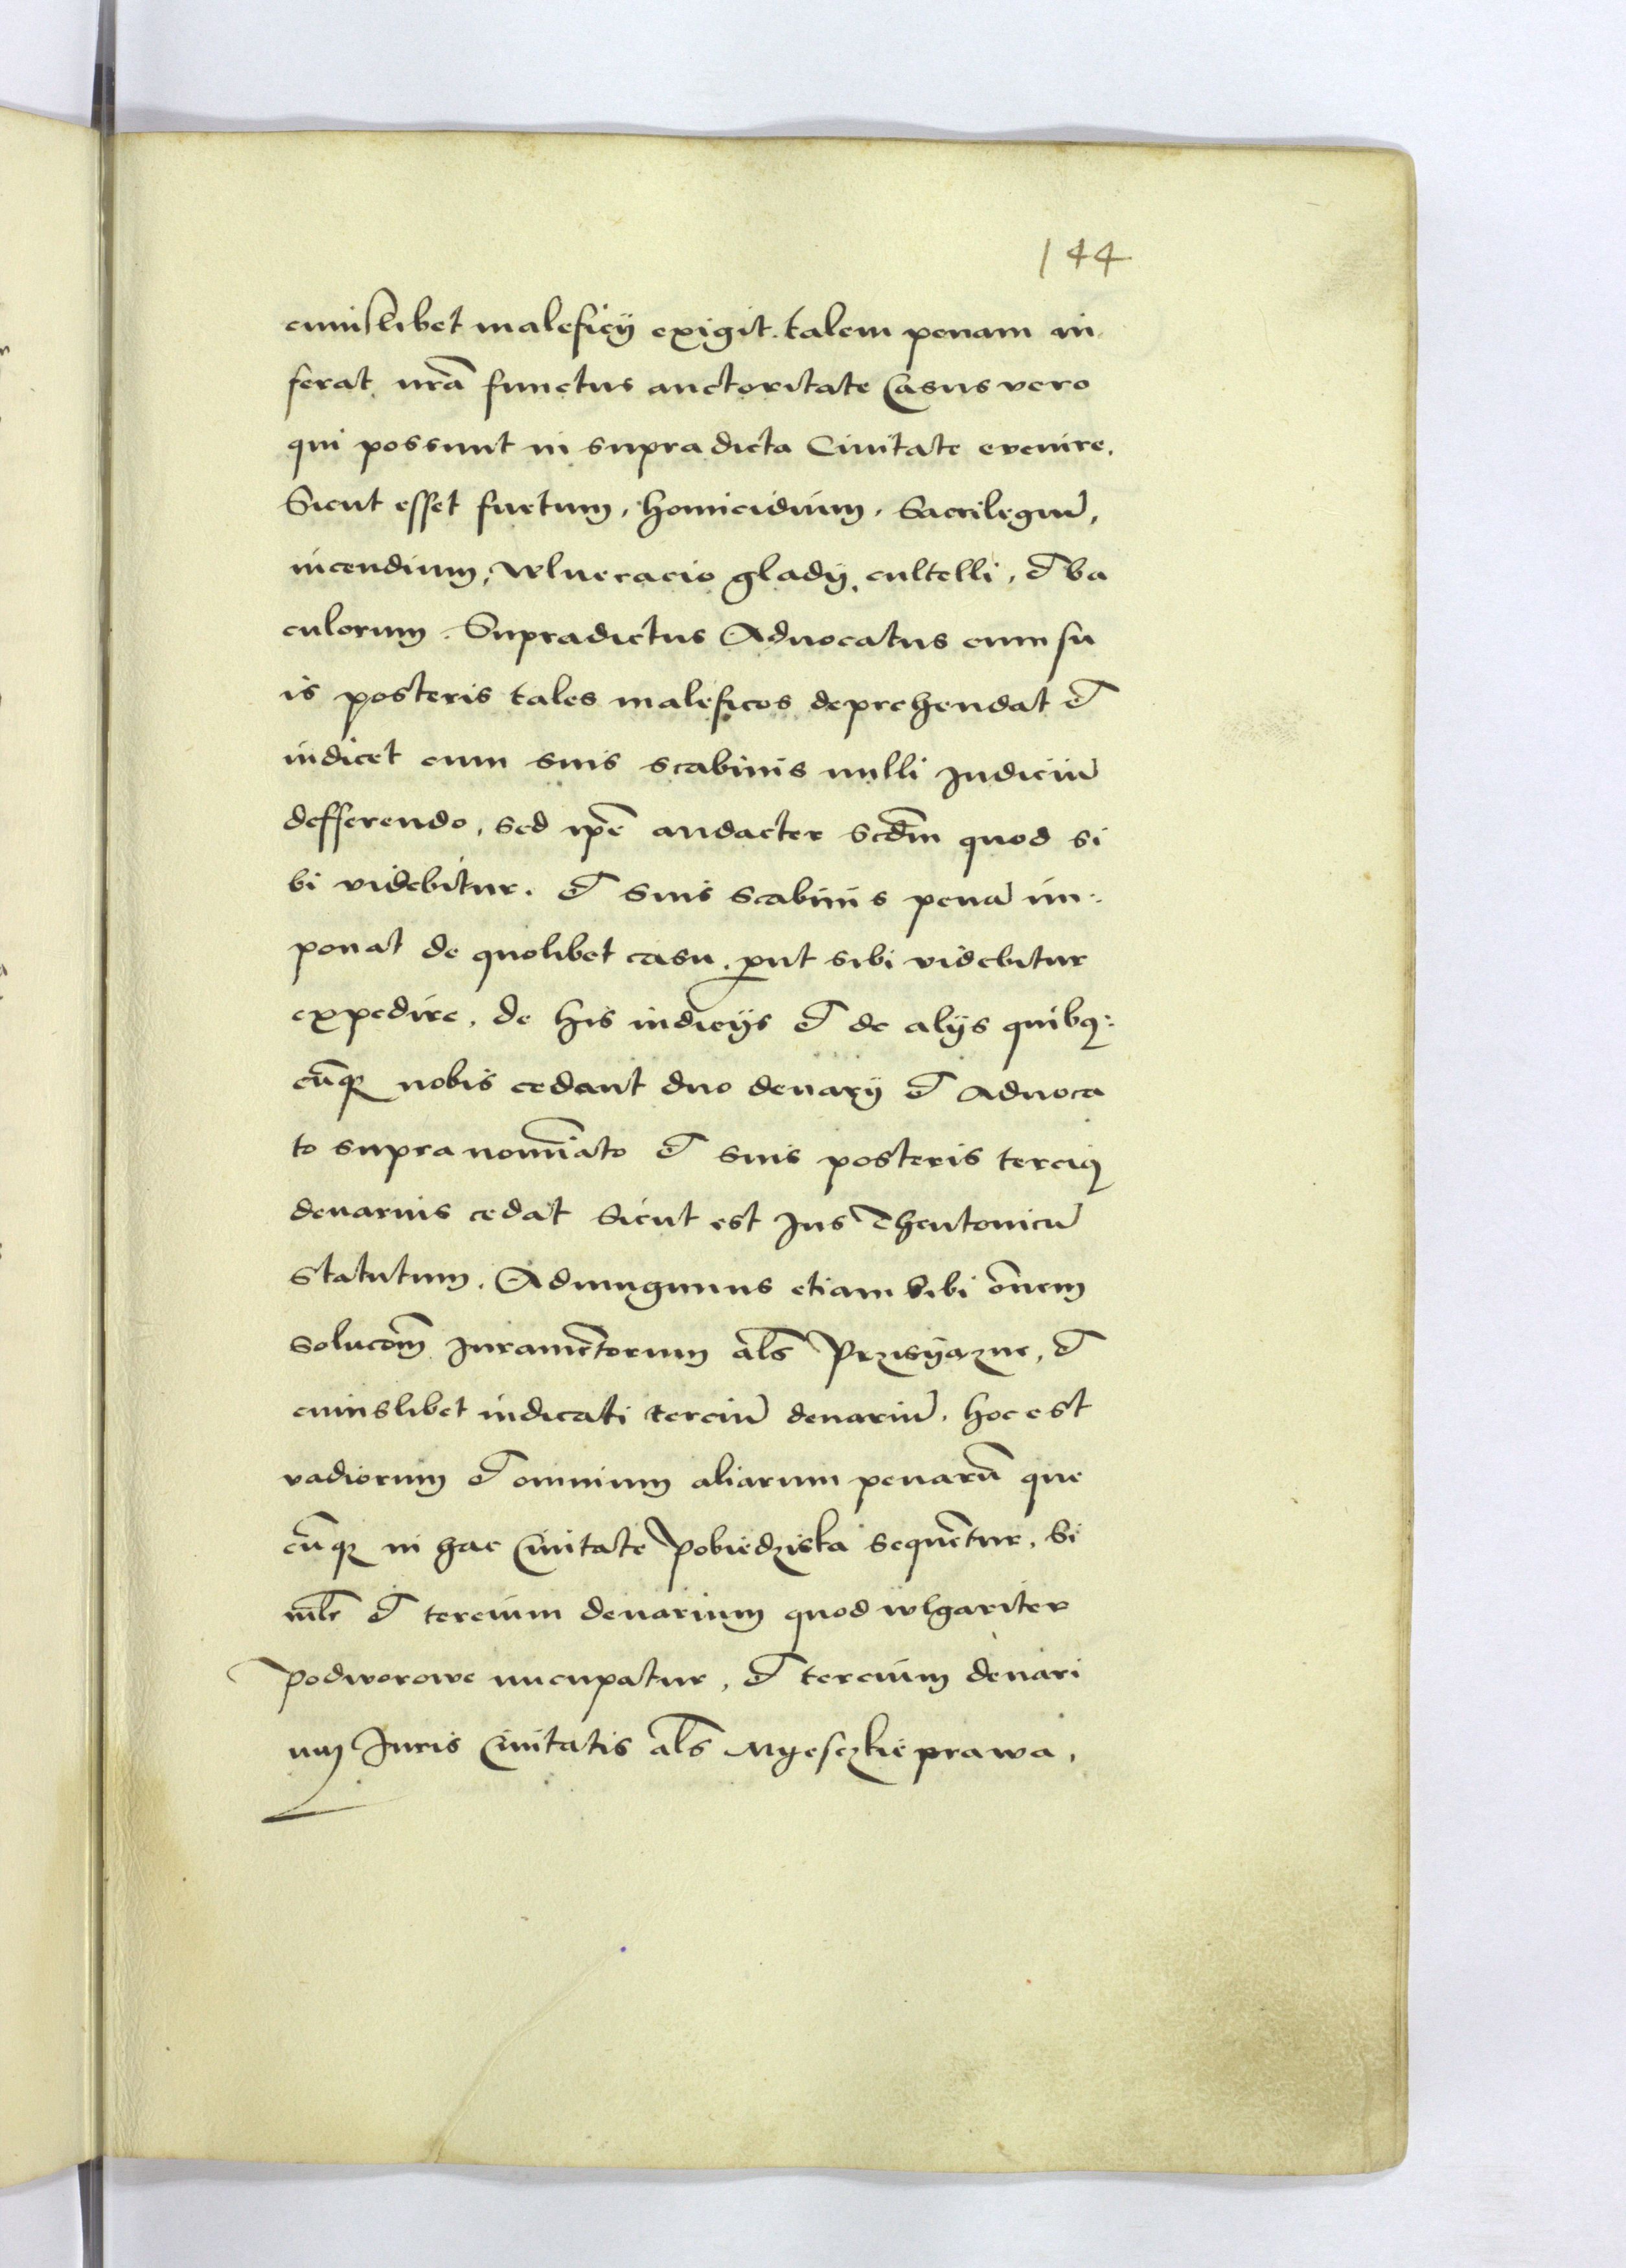 144
cuiuslibet maleficij exigit. talem penam in
ferat nr̃a functus auctoritate Casus vero
qui possunt in supradicta Ciuitate evenire.
Sicut esset furtum, homicidium, Sacrilegiũ,
incendium, wlneracio gladij, cultelli, et ba
culorum. Supradictus Aduocatus cum su
is posteris tales maleficos deprehendat et
iudicet cum suis scabinis nulli Judiciũ
defferendo, sed ip̃e audacter scd̃m quod si
bi videbitur. et suis scabinis penã im:
ponat de quolibet casu, ꝓut sibi videbitur
expedire, de his iudicijs et de alijs quibꝫ:
cũqꝫ nobis cedant duo denarij et Aduoca
to supra nomĩato et suis posteris terciꝯ
denarius cedat Sicut est Jus Theutonicũ
Statutum. Adiungimus etiam sibi õnem
solucõm Juramẽtorum als̃ Przysyazne, et
cuiuslibet iudicati terciũ denariũ, hoc est
vadiorum et omnium aliarum penarũ que
cũqꝫ in hac Ciuitate Pobiedziska sequẽtur, Si
mĩlr et tercium denarium quod wlgariter
podworowe nucupatur, et tercium denari
um Juris Ciuitatis als̃ Myesczkie prawa,